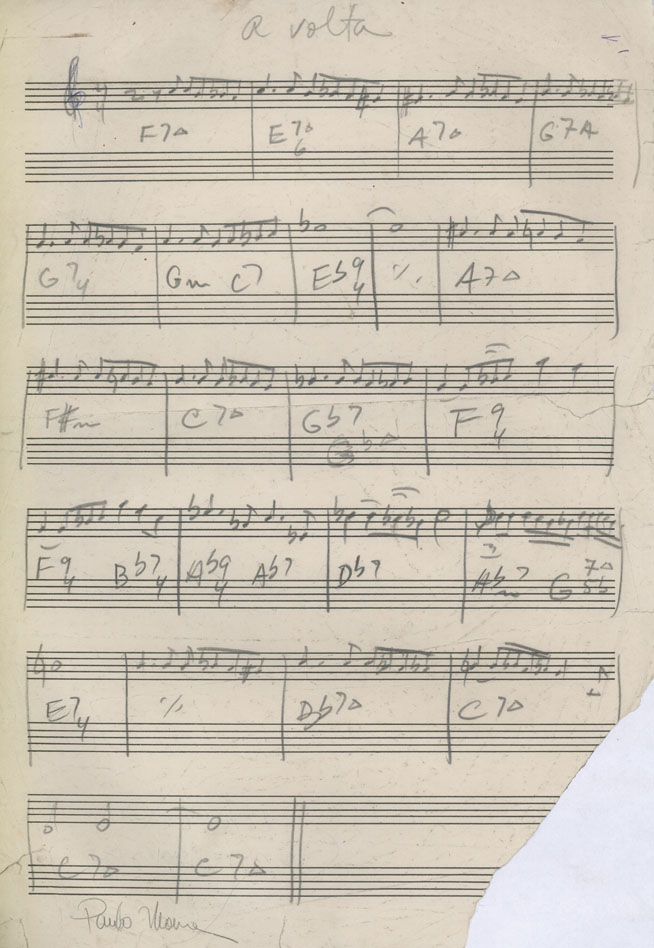 a volta
F7Δ E7Δ6 A7Δ G7Δ
G74 Gm C7 Eb94 ٪ A7Δ
F#m C7Δ Gb7 F94
F94 Bb74 Ab94 Ab7 Db7 Abm7 G7Δ
E74 ٪ Db7Δ C7Δ
C7Δ C7Δ
Paulo Moura